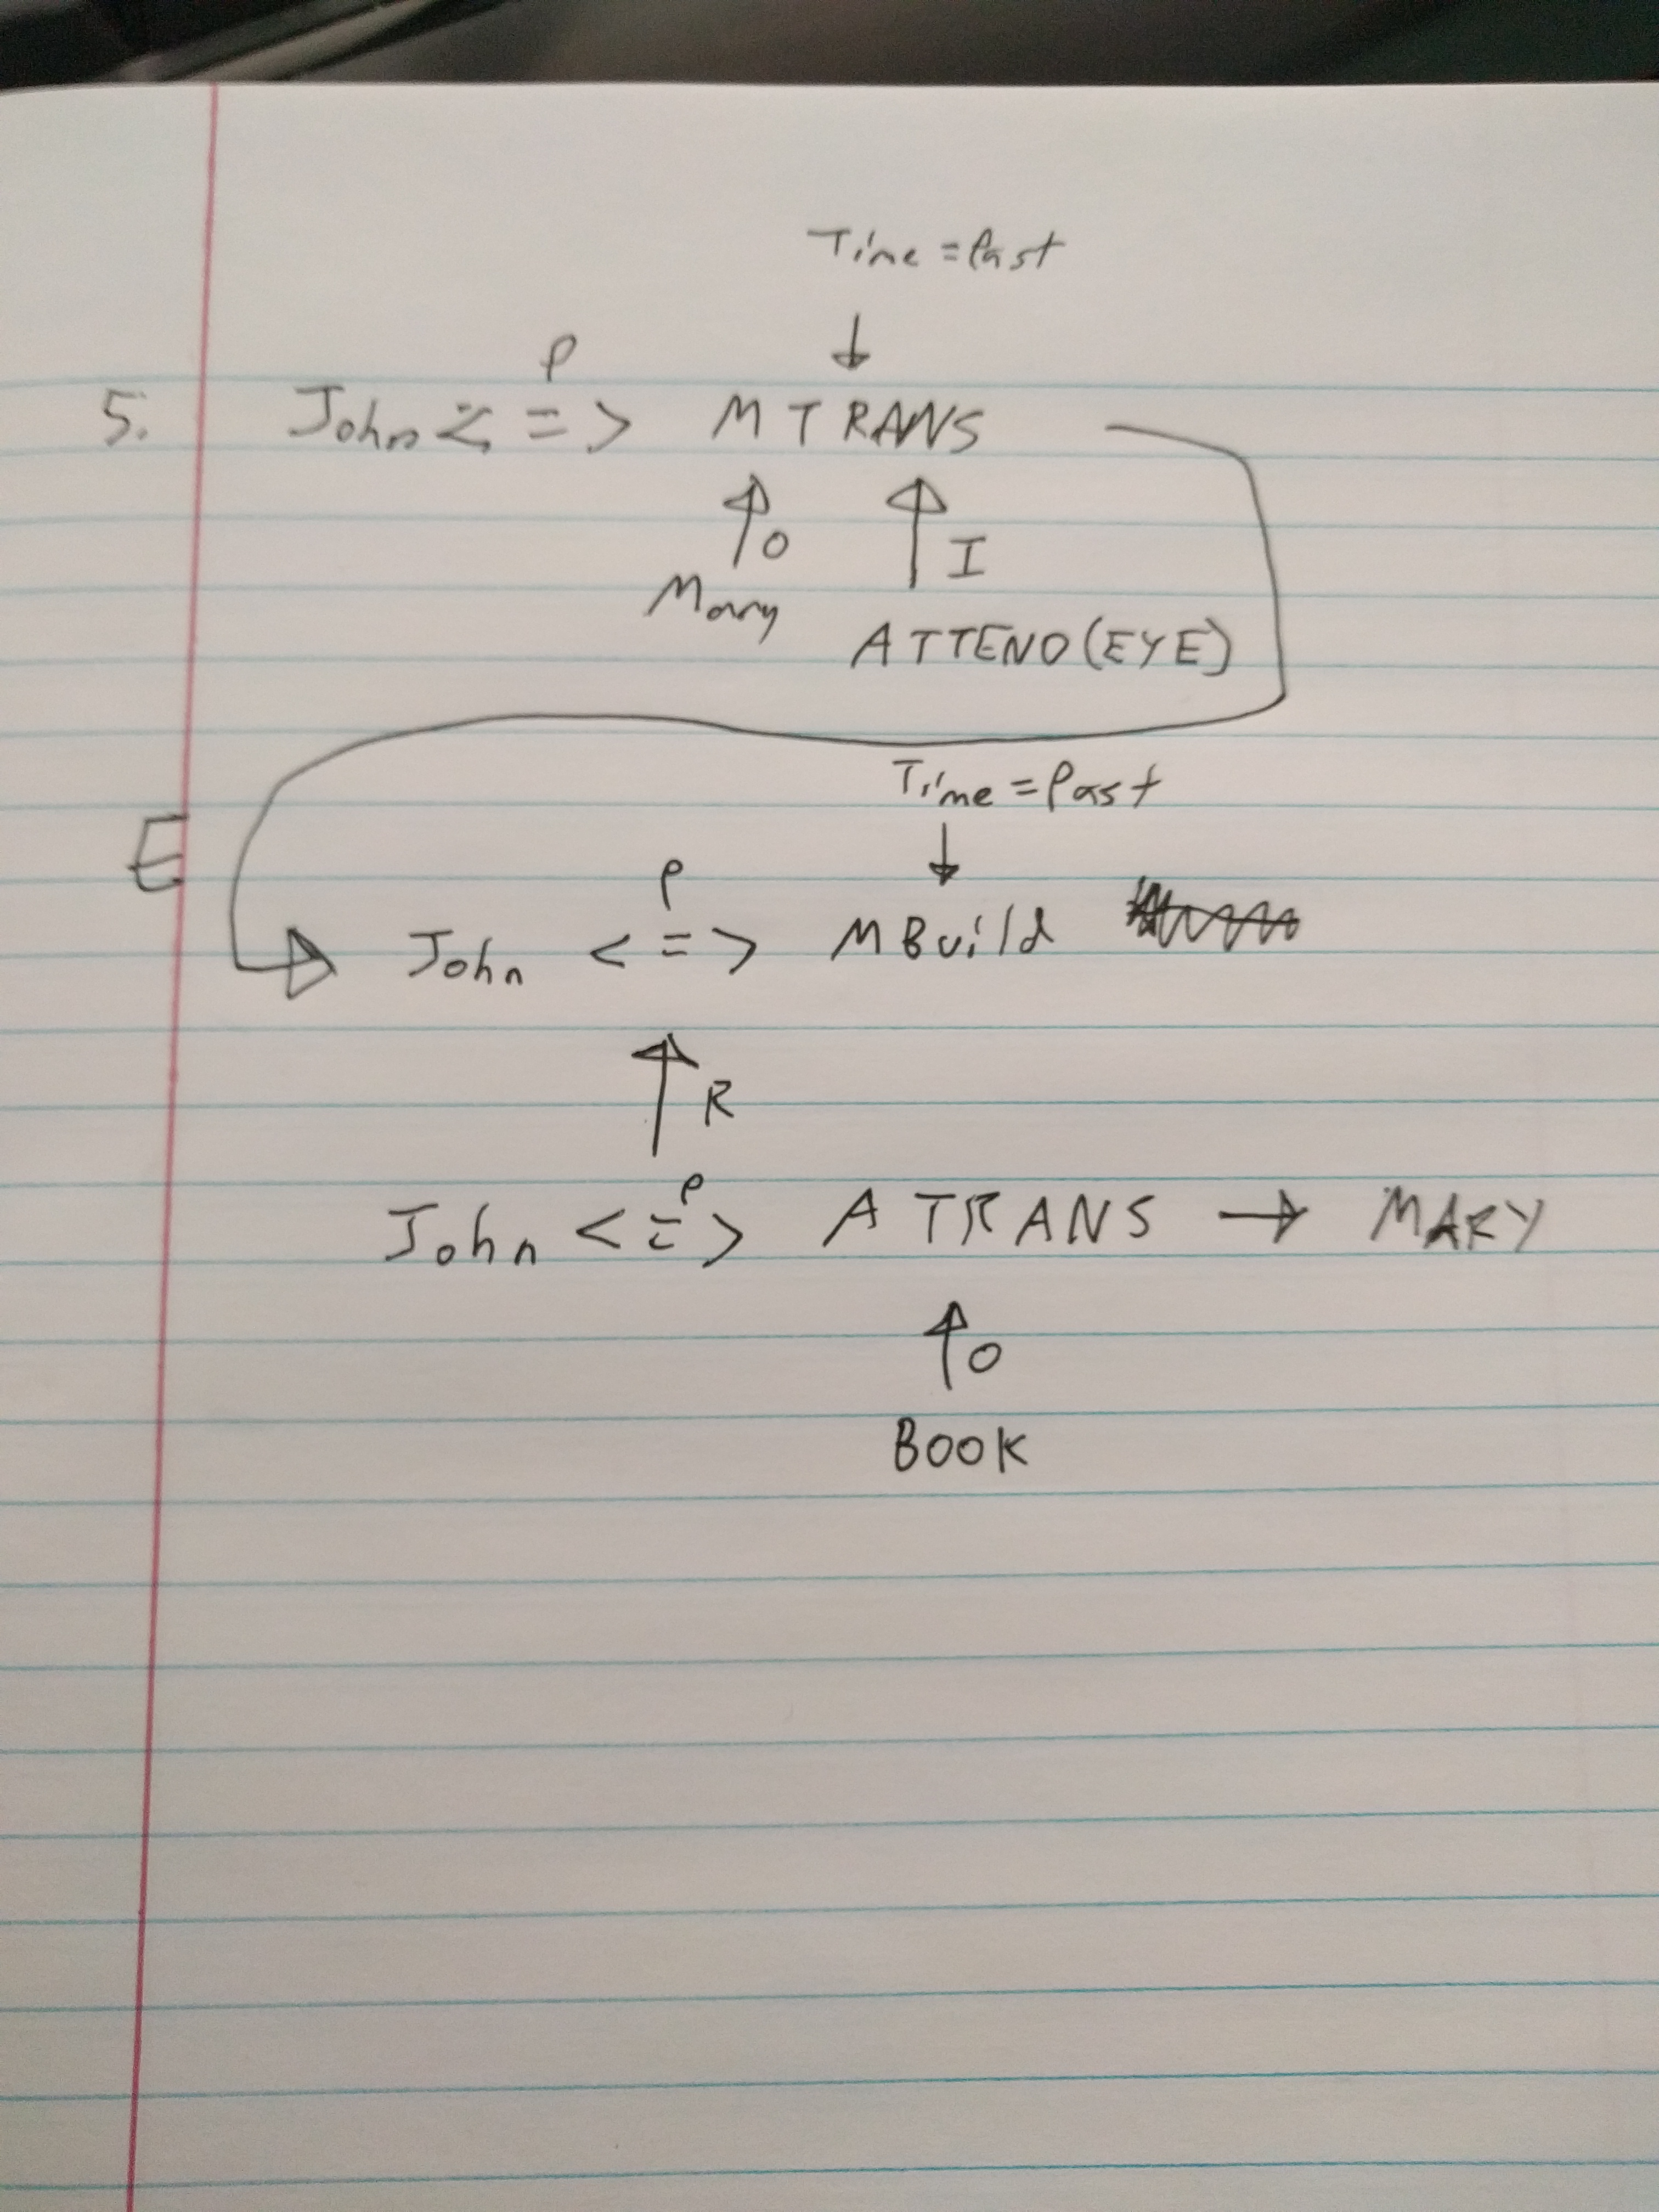 Time = Past
P
5. John <=> MTRANS
O I
Mary
ATTEND(EYE)
Time = Past
E
P
John <=> MBuild
R
P
John <=> ATRANS → MARY
O
BOOK